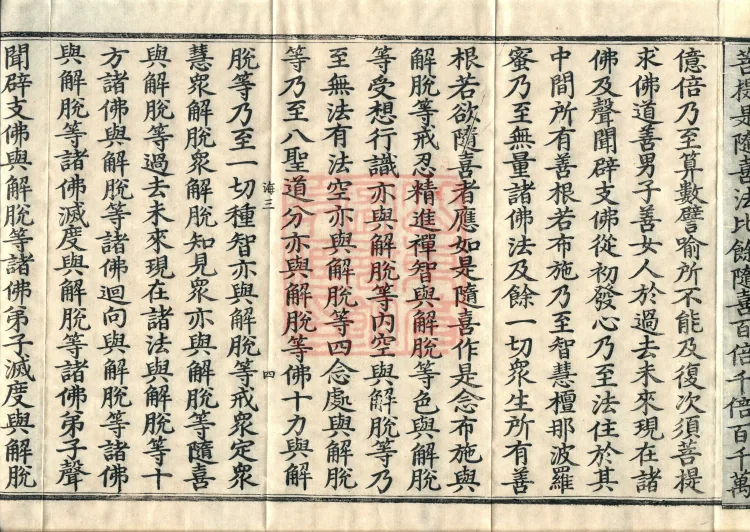 菩提是隨喜法比餘隨喜百倍千倍百千萬
億倍乃至算數譬喻所不能及復次須菩提
求佛道善男子善女人於過去未來現在諸
佛及聲聞辟支佛從初發心乃至法住於其
中間所有善根若布施乃至智慧檀那波羅
蜜乃至無量諸佛法及餘一切衆生所有善
根若欲隨喜者應如是隨喜作是念布施與
解脫等戒忍精進禪智與解脫等色與解脫
等受想行識亦與解脫等內空與解脫等乃
至無法有法空亦與解脫等四念處與解脫
等乃至八聖道分亦與解脫等佛十力與解
誨三 四
脫等乃至一切種智亦與解脫等戒衆定衆
慧衆解脫衆解脫知見衆亦與解脫等隨喜
與解脫等過去未來現在諸法與解脫等十
方諸佛與解脫等諸佛迴向與解脫等諸佛
與解脫等諸佛滅度與解脫等諸佛弟子聲
聞辟支佛與解脫等諸佛弟子滅度與解脫